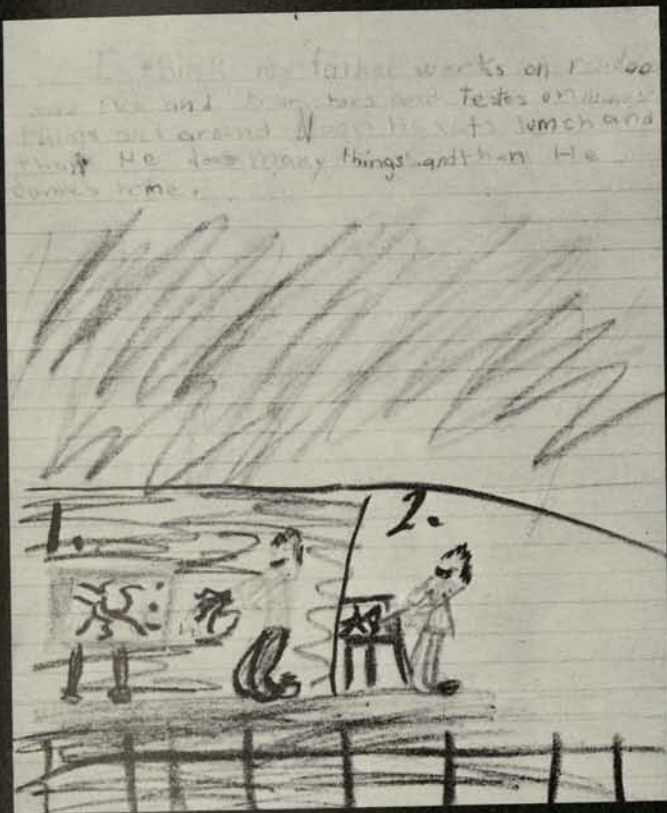 I think my father works on
and and and Testes
things and around Noon He eats lumch and
than He does many things and than He
comes home.
1.
2.